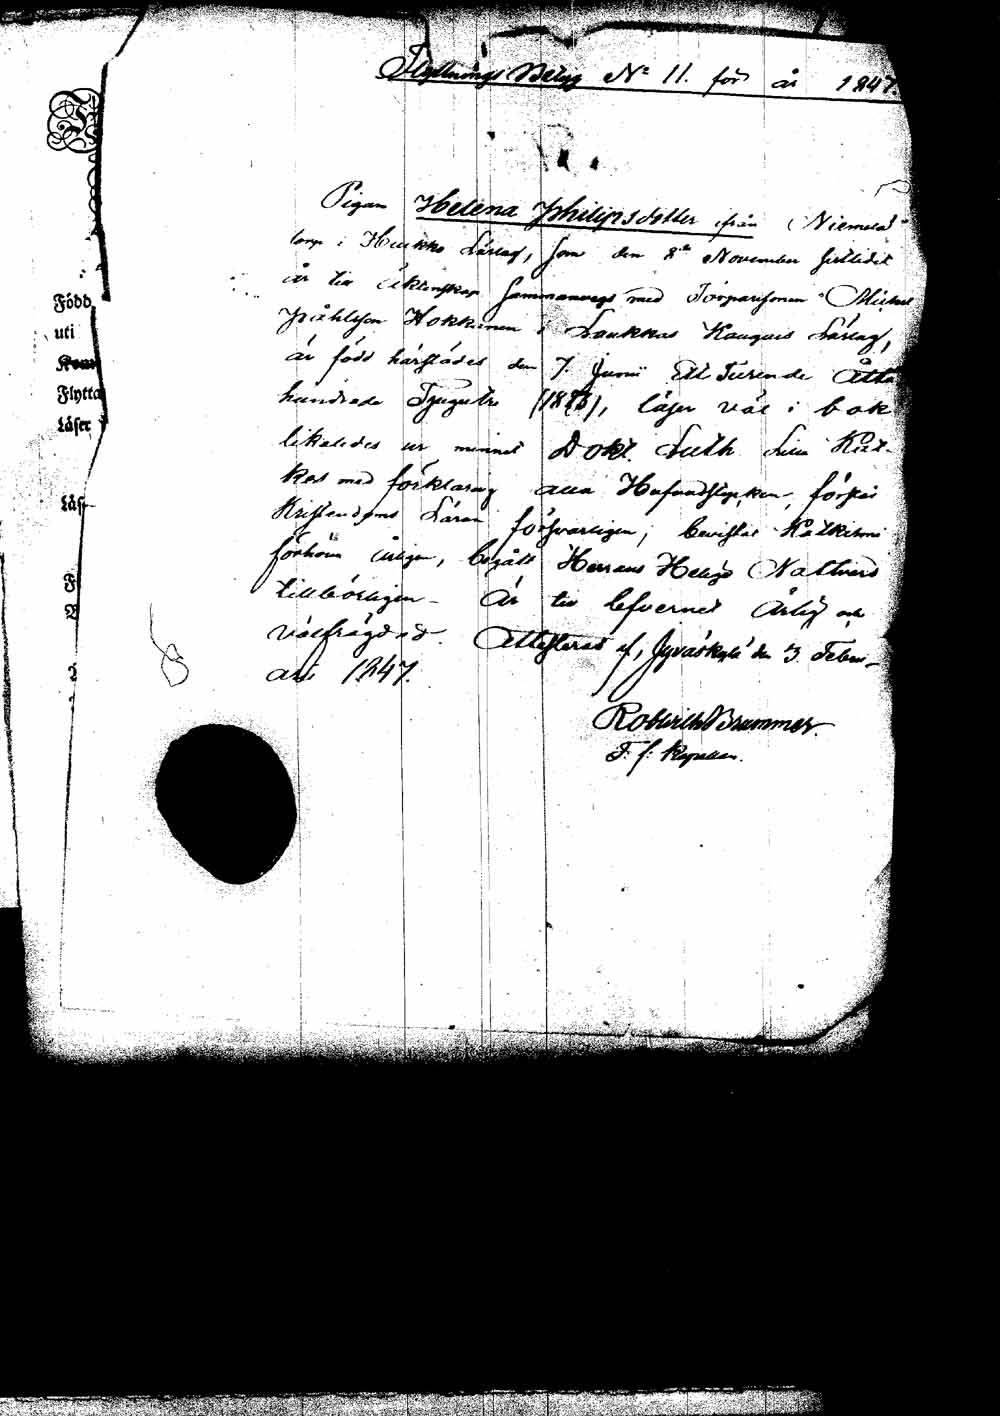 Flyttnings Betyg No 11. för år 1847.
Pigan Helena Philipsdotter från Niemelä
torp i Haukka Lärlag, som den 8de November sistledit
år till äktenskap sammanvegt med Torparesonen Michel
Påhlsson Hokkanen i Laukkas Kangais Lärlag,
är född härstädes den 7. Junii Ett Tusende Åtta
hundrade Tjugutre (1823), läser väl i bok
likaledes ur minnet Dokt. Luth. Lilla Kat-
kes med förklaring alla Hufvudstycken, förstår
Kristendoms Läran försvarligen, bevistat Katkismi
förhörn årligen, begått Herrans Heliga Nattvard
tillbörligen – Är till lefvernet Ärlig och
välfrägdad. Attesteras af, Jyväskylä den 3. Febru-
arii 1847.
Robert Brummer.
T. f. Kapellan.
Född
uti
Flytta
Läser
Läs-